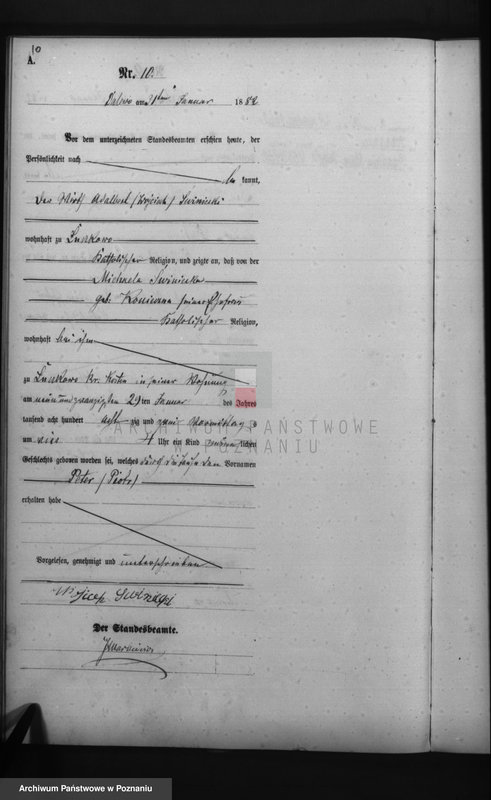 10
A.
Nr. 10.
Dalewo am 31ten Januar 1882
Vor dem unterzeichneten Standesbeamten erschien heute, der
Persönlichkeit nach
be kannt,
Der Wirth Adalbert (Wojciech)
wohnhaft zu
Katholischer Religion, und zeigte an, daß von der
Michaela
geb. seiner Ehefrau
Katholischer Religion,
wohnhaft bei ihm
zu Kr. Kosten in seiner Wohnung
am neunundzwanzigten 29ten Januar des Jahres
tausend acht hundert acht zig und zwei Vormittag s
um vier 4 Uhr ein Kind männ lichen
Geschlechts geboren worden sei, welches durch die Taufe den Vornamen
Peter (Piotr)
erhalten habe
Vorgelesen, genehmigt und unterschrieben
Der Standesbeamte.
ARCHIWUM PAŃSTWOWE
W POZNANIU
Archiwum Państwowe w Poznaniu